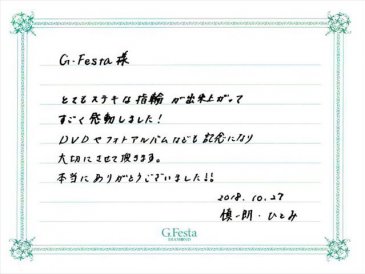 G.Festa 様
とてもステキな指輪が出来上がって
すごく感動しました！
DVDやフォトアルバムなども記念になり
大切にさせて頂きます。
本当にありがとうございました!!
2018.10.27
慎一朗・ひとみ
G.Festa
DIAMOND